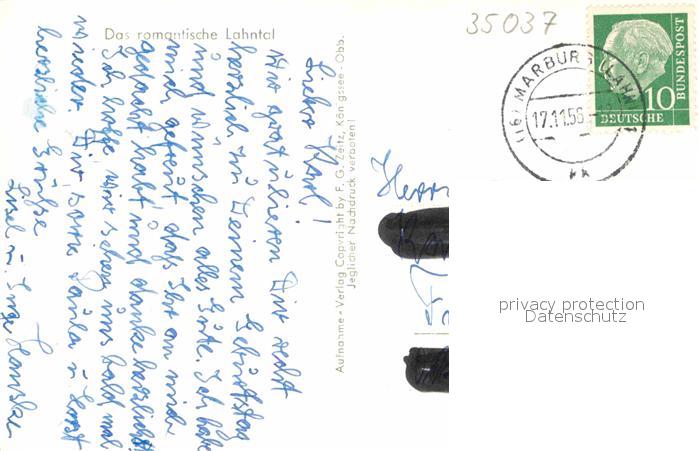 35037
Das romantische Lahntal
(16) MARBURG (LAHN) 1
17.11.56
kk
10
DEUTSCHE
BUNDESPOST
Lieber Karl!
Wir gratulieren Dir recht
herzlich zu Deinem Geburtstag
und wünschen alles Gute. Ich habe
mich gefreut, daß Ihr an mich
gedacht habt und danke herzlichst
Ich hoffe, wir sehen uns bald mal
wieder. Dir, sowie Paula u. Horst
herzliche Grüße
Liesel u.
Aufnahme - Verlag Copyright by F. G. Zeitz, Königssee - Obb.
Jeglicher Nachdruck verboten!
Herrn
privacy protection
Datenschutz